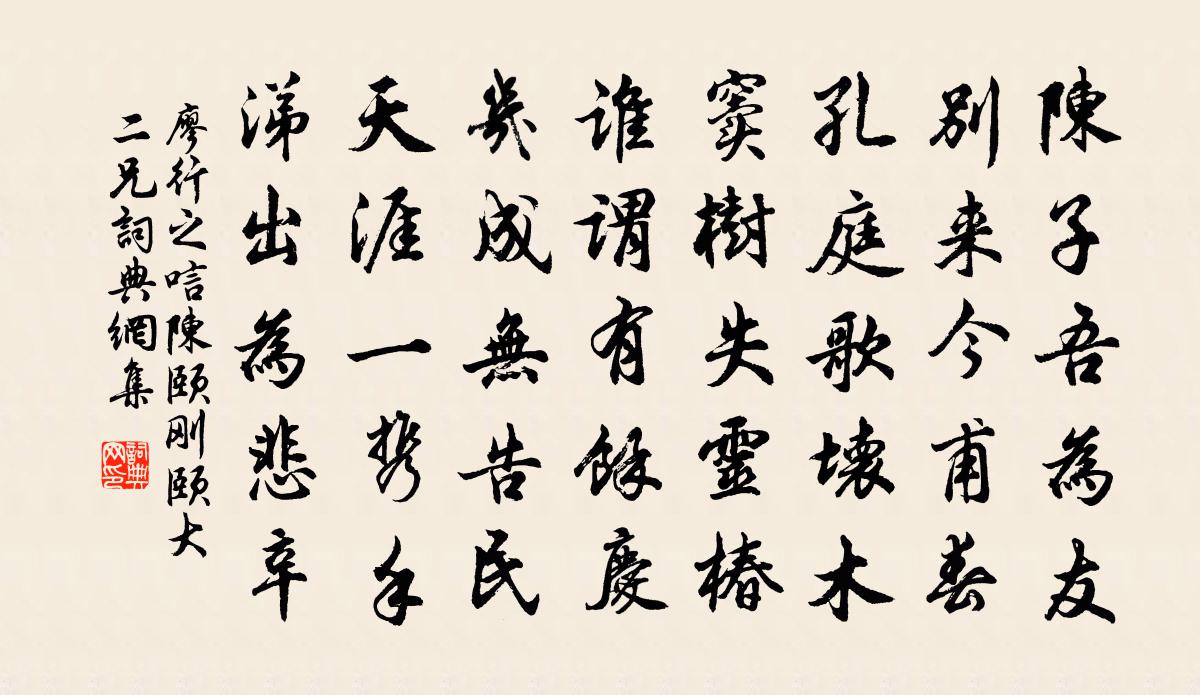 陳子吾為友
別来今甫春
孔庭歌壊木
竇樹失靈椿
誰謂有餘慶
幾成無告民
天涯一携手
涕出為悲辛
廖行之唁陳頤剛頤大
二兄詞典網集
詞典网印